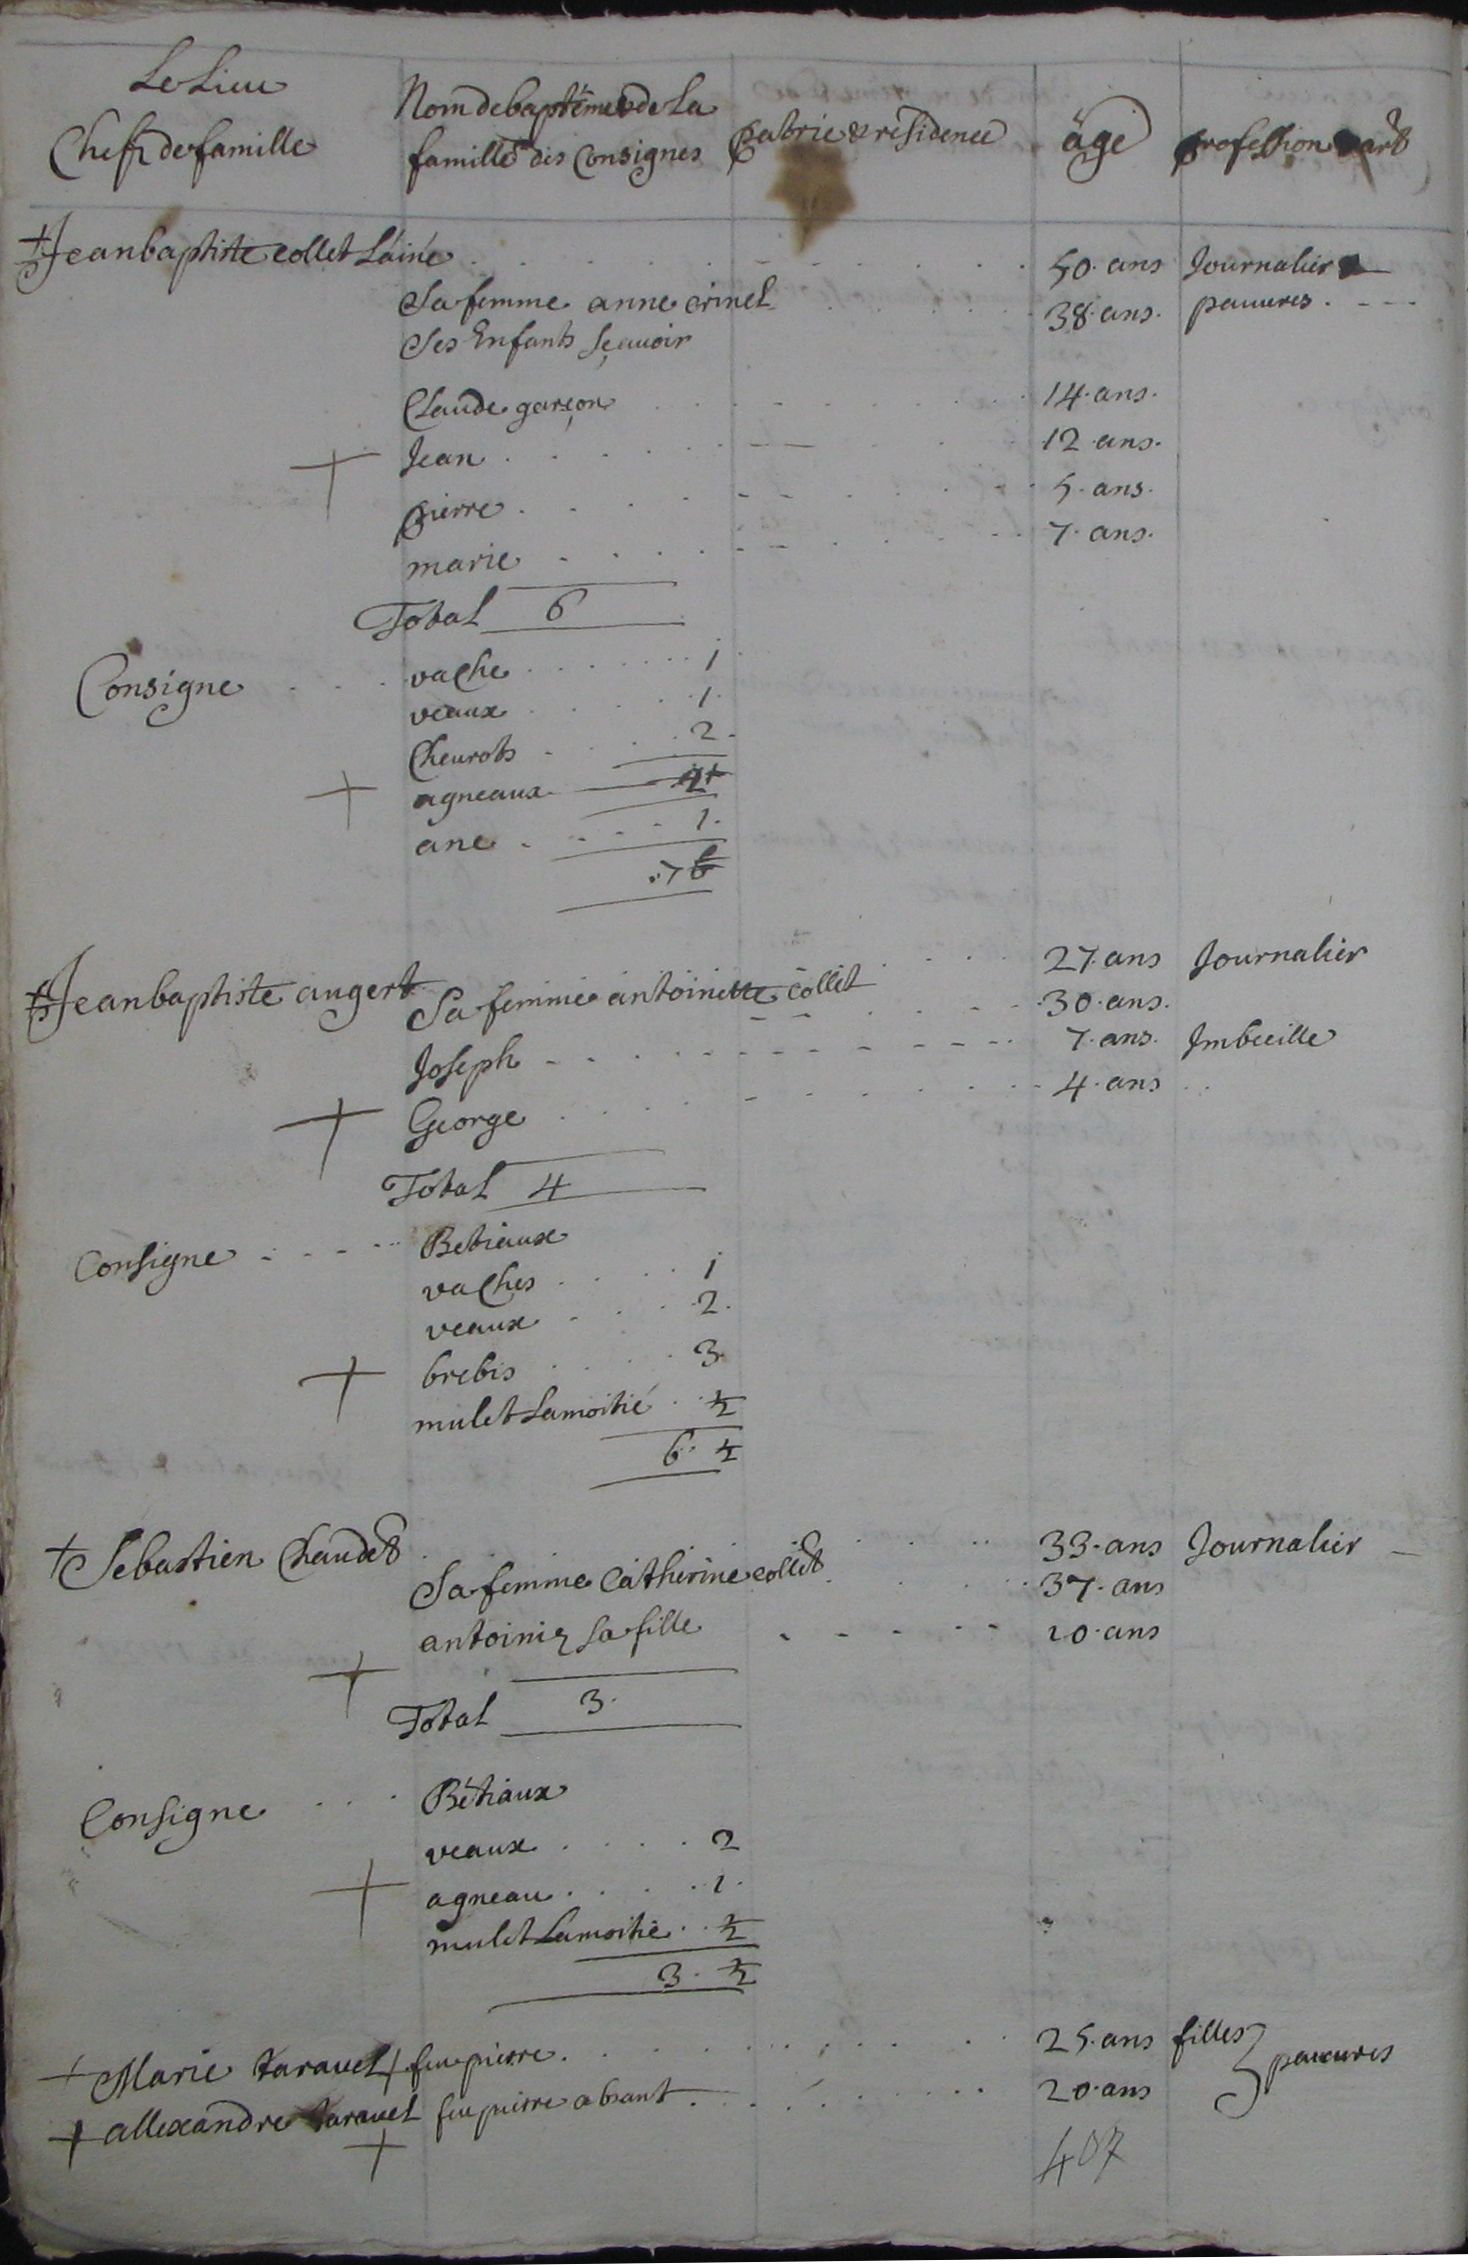 Le Lieu
Chefz de famille
Nom de baptéme de La
famille des Consignes
patrie & residence
âge
profession art
Jean baptiste collet L'ainé 50 ans Journalier
Sa femme anne crinel 38 ans pauures
Ses Enfants sçauoir
Claude garçon 14 ans
Jean 12 ans
pierre 5 ans
marie 7 ans
Total 6
Consigne vache 1
veaux 1
Cheurots 2
agneaux
ane 1
7 6
Jean baptiste augert 27 ans Journalier
Sa femme antoinette collet 30 ans
Joseph 7 ans Imbecille
George 4 ans
Total 4
Consigne Betiaux
vaches 1
veaux 2
brebis 3
mulet La moitié ½
6 ½
Sebastien Chaudet 33 ans Journalier
Sa femme Catherine collet 37 ans
sa fille 10 ans
Total 3
Consigne Bétiaux
veaux 2
agneau 1
mulet La moitié ½
3 ½
Marie taravel feu pierre 25 ans filles
pauures
allexandre taravel feu pierre absant 20 ans
407